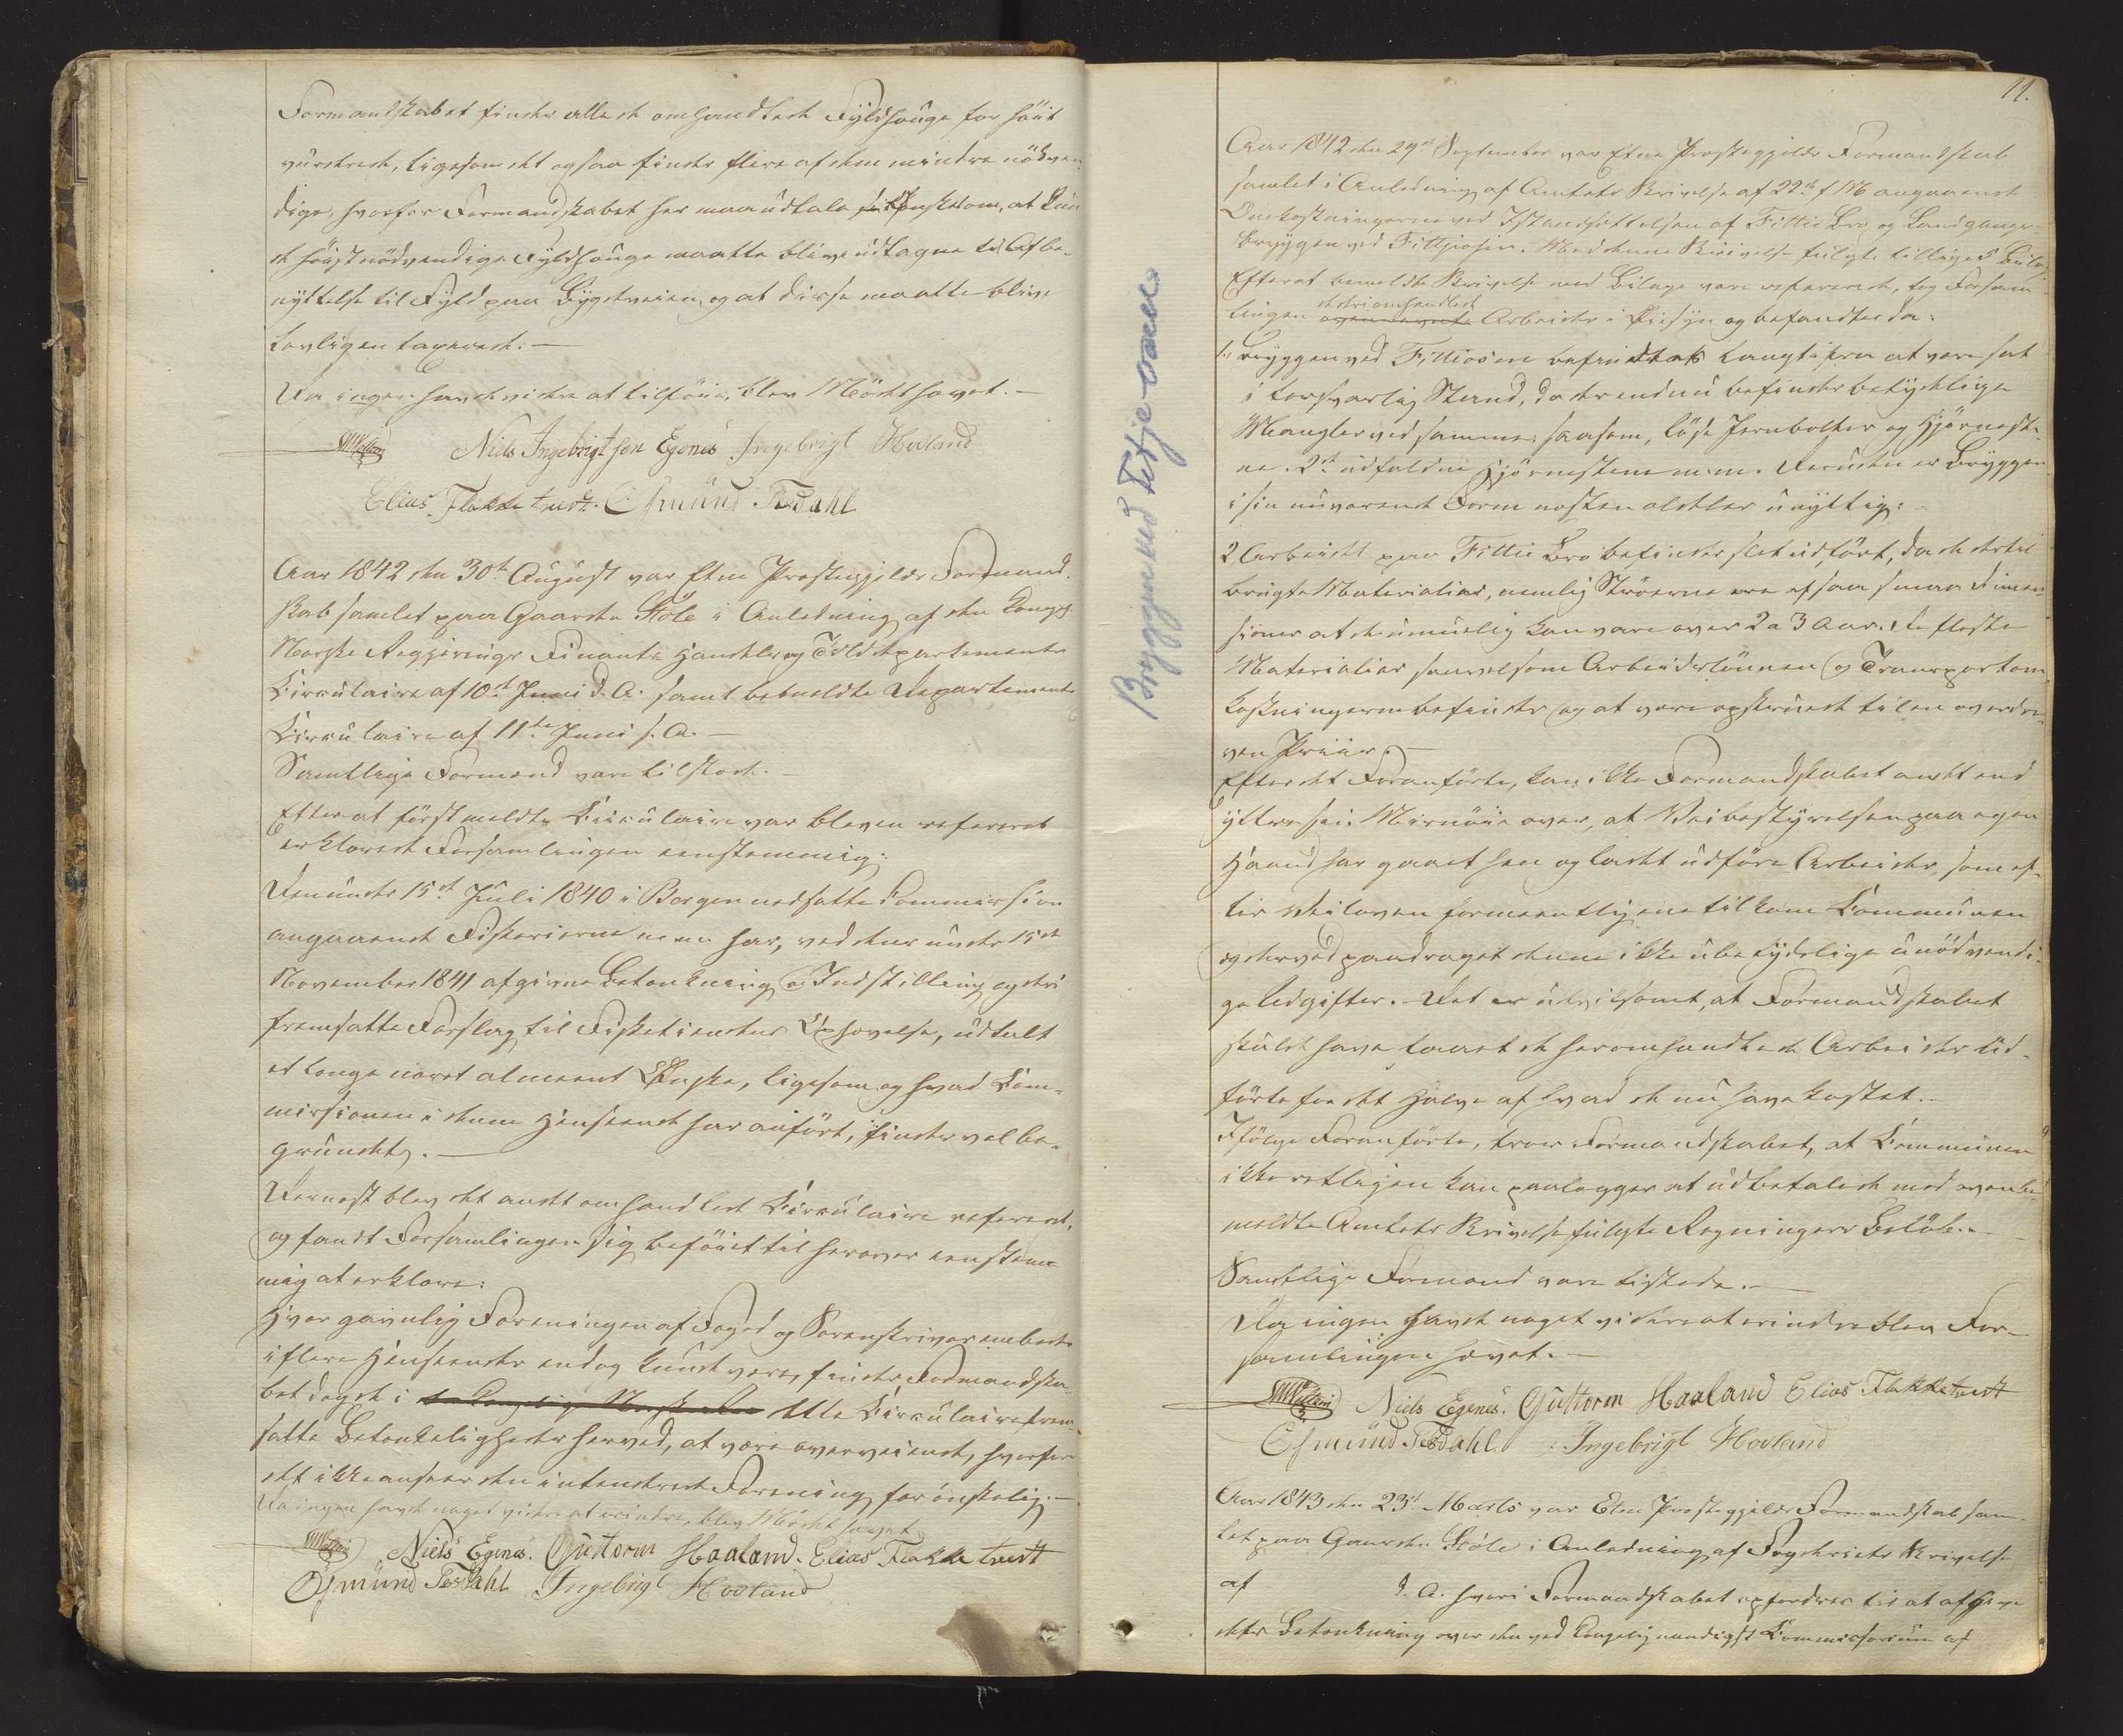 Formandskabet finder alle de omhandlede Fyldhouge for høit
vurderede, ligesom det ogsaa finder flere af dem mindre nødven
dige, hvorfor Formandskabet her maa udtale sit Ønske om, at kun
de høist nødvendige Fyldhouge maatte blive udtagne til Afbe-
nyttelse til Fyld paa Bygdeveien, og at disse maatte blive
lovligen taxerede.—
Da ingen havde videre at tilføie, blev Mødet hævet.—
Niels Ingebrigtsen Egenes Ingebrigt Hovland
Elias Flakketvedt. Osmund Tesdahl
Aar 1842 den 30te August var Etne Præstegjelds Formand
skab samlet paa Gaarden Støle i Anledning af den Kongl
Norske Regjerings Finants Handels og Tolddepartements
Circulaire af 10de Juni d. A. samt bemeldte Departements
Circulaire af 11te Juni s. A.—
Samtlige Formænd vare tilstede.—
Efter at førstmeldte Circulaire var bleven refereret
erklærede Forsamlingen eenstemmig:
Den under 15de Juli 1840 i Bergen nedsatte Commission
angaaende Fiskerierne m. m. har, ved dens under 15de
November 1841 afgivne Betænkning og Indstilling og deri
fremsatte Forslag til Fisketiendens Ophævelse, udtalt
et længe næret almeent Ønske, ligesom og hvad Com-
missionen i denne Henseende har anført, findes vel be-
grundet.—
Dernæst blev det andet omhandlede Circulaire refereret,
og fandt Forsamlingen sig beføiet til herover eenstem-
mig at erklære:
Hvor gavnlig Foreningen af Foged og Sorenskriverembeder
i flere Henseender endog kunde være, finder Formandska-
bet dog de i dette Circulaire frem-
satte Betænkeligheder herved, at være overveiende, hvorfor
det ikke anseer den intenderede Forening for ønskelig.—
Da ingen havde noget videre at erindre, blev Mødet hævet
Niels Egenes. Guttorm Haaland. Elias Flakketvedt
Osmund Tesdahl Ingebrigt Hovland
Bryggen ved Fitje-osen
11.
Aar 1842 den 29de September var Etne Præstegjelds Formandskab
samlet i Anledning af Amtets Skrivelse af 22de f M angaaende
Omkostningerne ved Istandsættelsen af Fittie Bro og Landgangs-
bryggen ved Fittjeosen. Med denne Skrivelse fulgte tillige 5 Bilag
Efterat bemeldte Skrivelse med Bilage vare refererede, tog Forsam
de deri omhandlede
lingen ovennævnte Arbeider i Øiesyn og befandtes da:
1. Bryggen ved Fittiosen befindtes langt ifra at være sat
i forsvarlig Stand, da der endnu befindes betydelige
Mangler ved samme, saasom, løse Jernbolter og Hjørneste-
ne. 2de udfaldne Hjørnestene m. m. Desuden er Bryggen
i sin nuværende Form næsten aldeles unyttig:
2 Arbeidet paa Fittie Bro befindes slet udført, da de dertil
brugte Materialier, nemlig Strøerne ere af saa smaa Dimen-
sioner at de umuelig kan vare over 2 a 3 Aar. De fleste
Materialier saavelsom Arbeidslønnen og Transportom
kostningerne befindes og at være opskruede til en overdre-
ven Priis.—
Efter det Foranførte, kan ikke Formandskabet andet end
yttre sin Misnøie over, at Veibestyrelsen paa egen
Haand har gaaet hen og ladet udføre Arbeider, som ef-
ter Veiloven formeentligen tilkom Communen
og derved paadraget denne ikke ubetydelige unødvendi-
ge Udgifter. Det er utvilsomt, at Formandskabet
skulde have faaet de heromhandlede Arbeider ud-
førte for det Halve af hvad de nu have kostet.—
Ifølge Foranførte, troer Formandskabet, at Communen
ikke retligen kan paalægges at udbetale de med ovenbe-
meldte Amtets Skrivelse fulgte Regningers Beløb.—
Samtlige Formænd vare tilstede.—
Da ingen havde noget videre at erindre blev For-
samlingen hævet.—
Niels Egenes. Guttorm Haaland Elias Flakketvedt
Osmund Tesdahl. Ingebrigt Hovland
Aar 1843 den 23de Marts var Etne Præstegjelds Formandskab sam-
let paa Gaarden Støle i Anledning af Fogderiets Skrivelse
af d. A. hvori Formandskabet opfordres til at afgive
dets Betænkning over den ved Kongelig naadigst Commissorium af